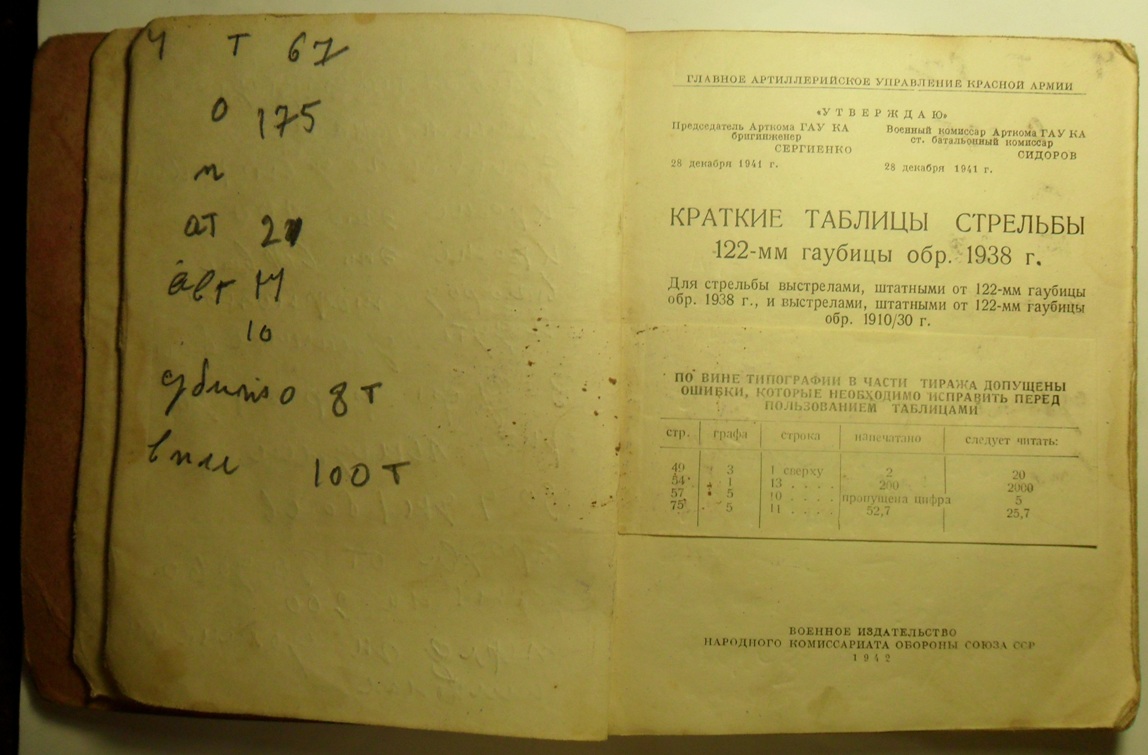 Ч Т 67
О 175
п
ат 21
авт 14
10
убито 8 т
в пл 100 т
ГЛАВНОЕ АРТИЛЛЕРИЙСКОЕ УПРАВЛЕНИЕ КРАСНОЙ АРМИИ
«УТВЕРЖДАЮ»
Председатель Арткома ГАУ КА
бригинженер
СЕРГИЕНКО
28 декабря 1941 г.
Военный комиссар Арткома ГАУ КА
ст. батальонный комиссар
СИДОРОВ
28 декабря 1941 г.
КРАТКИЕ ТАБЛИЦЫ СТРЕЛЬБЫ
122-мм гаубицы обр. 1938 г.
Для стрельбы выстрелами, штатными от 122-мм гаубицы
обр. 1938 г., и выстрелами, штатными от 122-мм гаубицы
обр. 1910/30 г.
ПО ВИНЕ ТИПОГРАФИИ В ЧАСТИ ТИРАЖА ДОПУЩЕНЫ
ОШИБКИ, КОТОРЫЕ НЕОБХОДИМО ИСПРАВИТЬ ПЕРЕД
ПОЛЬЗОВАНИЕМ ТАБЛИЦАМИ
стр. графа строка напечатано следует читать:
49 3 1 сверху 2 20
54 1 13 . . . . 200 2000
57 5 10 . . . . пропущена цифра 5
75 5 11 . . . . 52,7 25,7
ВОЕННОЕ ИЗДАТЕЛЬСТВО
НАРОДНОГО КОМИССАРИАТА ОБОРОНЫ СОЮЗА ССР
1942